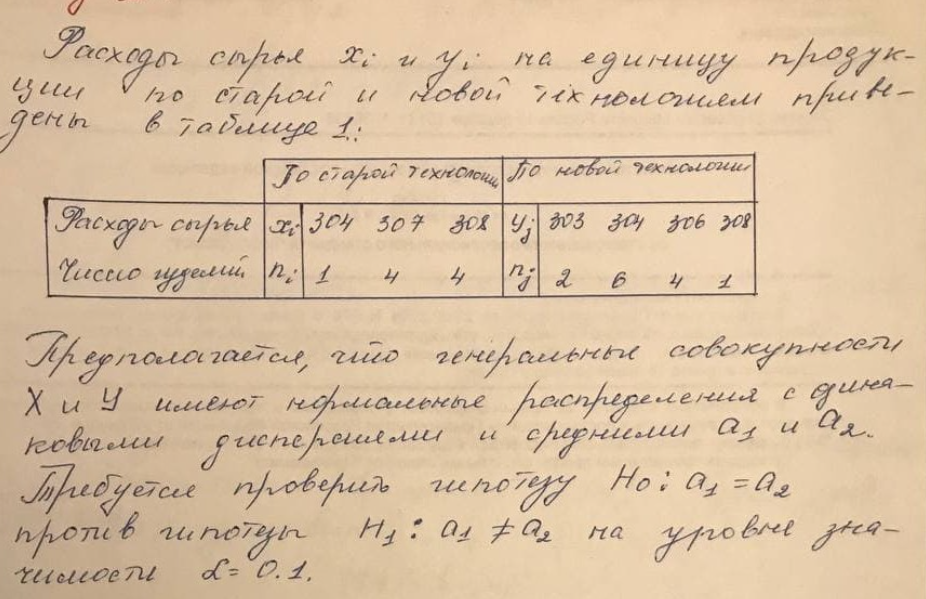 Расходы сырья xi и yi на единицу продук-
ции по старой и новой технологием приве-
дены в таблице 1:
По старой технологии По новой технологии
Расходы сырья xi 304 307 308 yj 303 304 306 308
Число изделий ni 1 4 4 nj 2 6 4 1
Предполагается, что генеральные совокупности
X и Y имеют нормальные распределения с одина-
ковыми дисперсиями и средними a1 и a2.
Требуется проверить гипотезу H0: a1 = a2
против гипотезы H1: a1 ≠ a2 на уровне зна-
чимости α = 0.1.